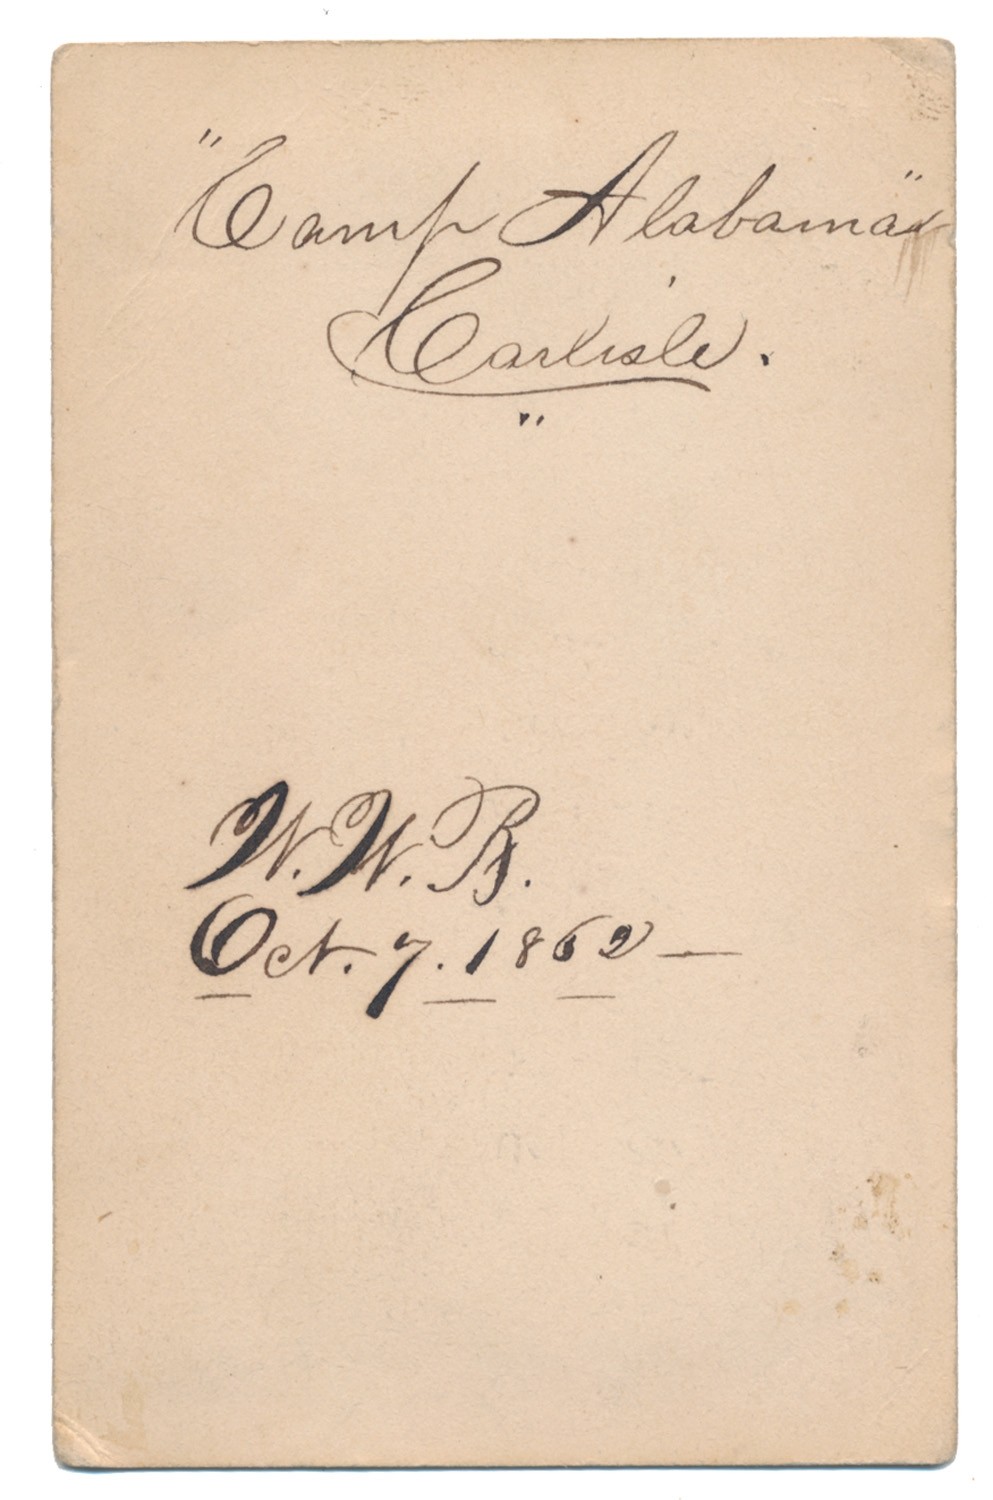 "Camp Alabama"
Carlisle.
"
W. W. B.
Oct. 7. 1862 —